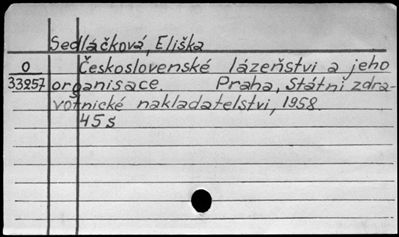 Sedláčková, Eliška
O Československé lázeňství a jeho
33257 organisace. Praha, Státní zdra-
votnické nakladatelství, 1958.
45 s